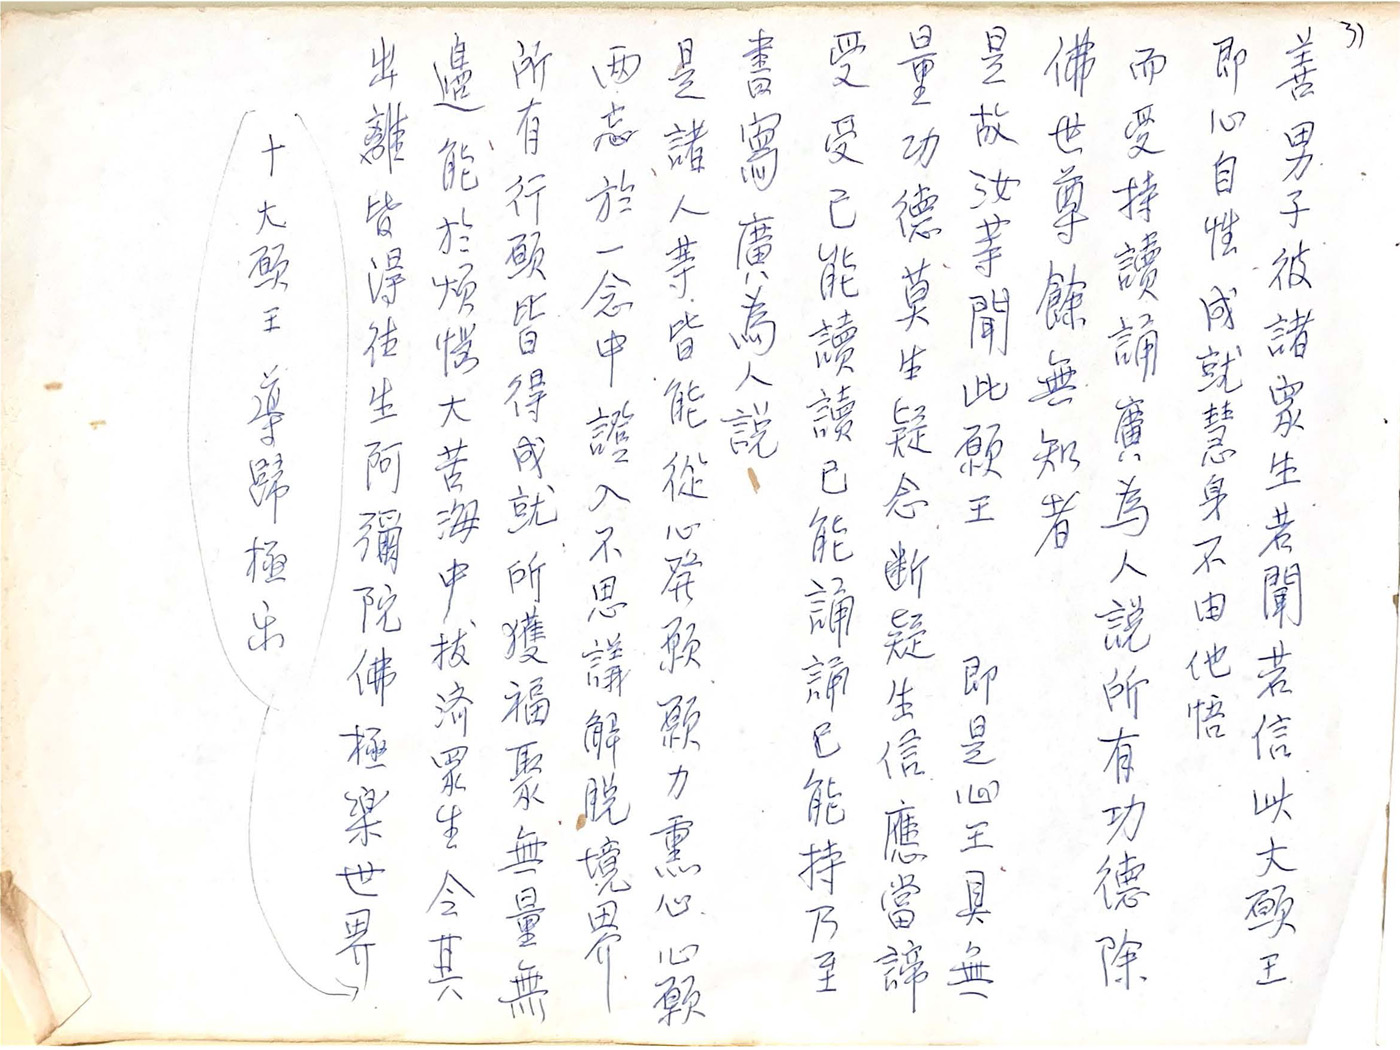 31
善男子彼諸眾生若聞若信此大願王
即心自性成就慧身不由他悟
而受持讀誦廣為人說所有功德除
佛世尊餘無知者
是故汝等聞此願王 即是心王具無
量功德莫生疑念斷疑生信應當諦
受受已能讀讀已能誦誦已能持乃至
書寫廣為人說
是諸人等皆能從心發願願力熏心心願
兩忘於一念中證入不思議解脫境界
所有行願皆得成就所獲福聚無量無
邊能於煩惱大苦海中拔濟眾生令其
出離皆得往生阿彌陀佛極樂世界
十大願王導歸極乐